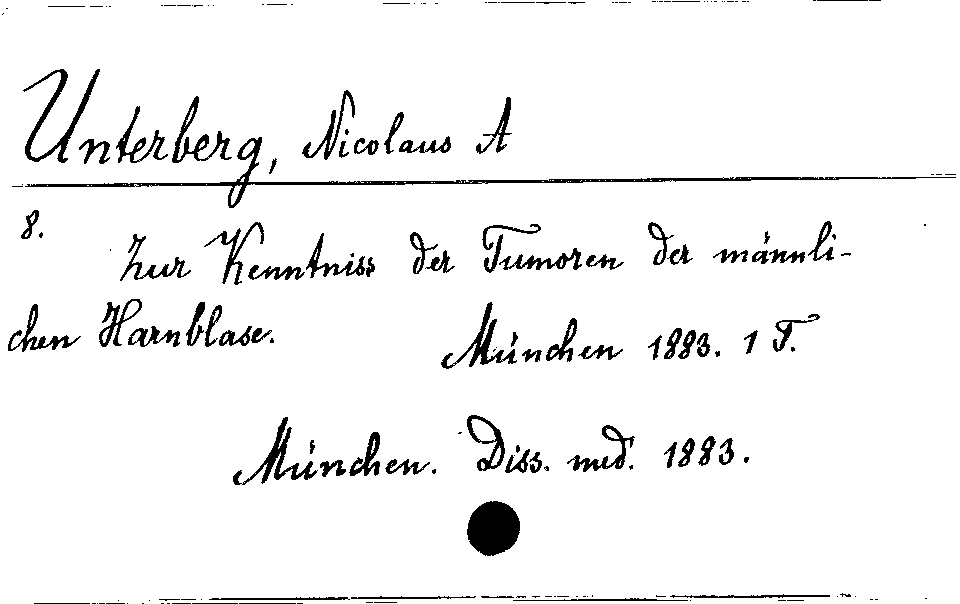 Unterberg, Nicolaus A
8.
Zur Kenntniss der Tumoren der männli-
chen Harnblase.
München 1883. 1 T.
München. Diss. med. 1883.